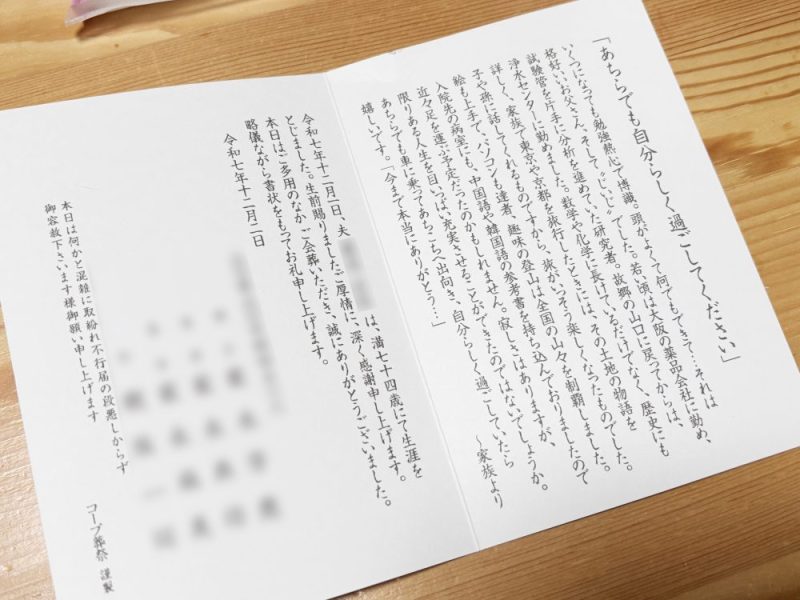 「あちらでも自分らしく過ごしてください」
いくつになっても勉強熱心で博識。頭がよくて何でもできて…それは
格好いいお父さん、そして〝じいじ〟でした。若い頃は大阪の薬品会社に勤め、
試験管を片手に分析を進めていた研究者。故郷の山口に戻ってからは、
浄水センターに勤めました。数学や化学に長けているだけでなく、歴史にも
詳しく、家族で東京や京都を旅行したときには、その土地の物語を
子や孫に話してくれるものですから、旅がいっそう楽しくなったものでした。
絵も上手で、パソコンも達者、趣味の登山は全国の山々を制覇しました。
入院先の病室でも、中国語や韓国語の参考書を持ち込んでおりましたので
近々足を運ぶ予定だったのかもしれません。寂しさはありますが、
限りある人生を目いっぱい充実させることができたのではないでしょうか。
あちらでも車に乗ってあちこちへ出向き、自分らしく過ごしていたら
嬉しいです。「今まで本当にありがとう…」
～家族より
令和七年十二月一日、夫
は、満七十四歳にて生涯を
とじました。生前賜りましたご厚情に、深く感謝申し上げます。
本日はご多用のなかご会葬いただき、誠にありがとうございました。
略儀ながら書状をもってお礼申し上げます。
令和七年十二月二日
本日は何かと混雑に取紛れ不行届の段悪しからず
御容赦下さいます様御願い申し上げます
コープ葬祭 謹製